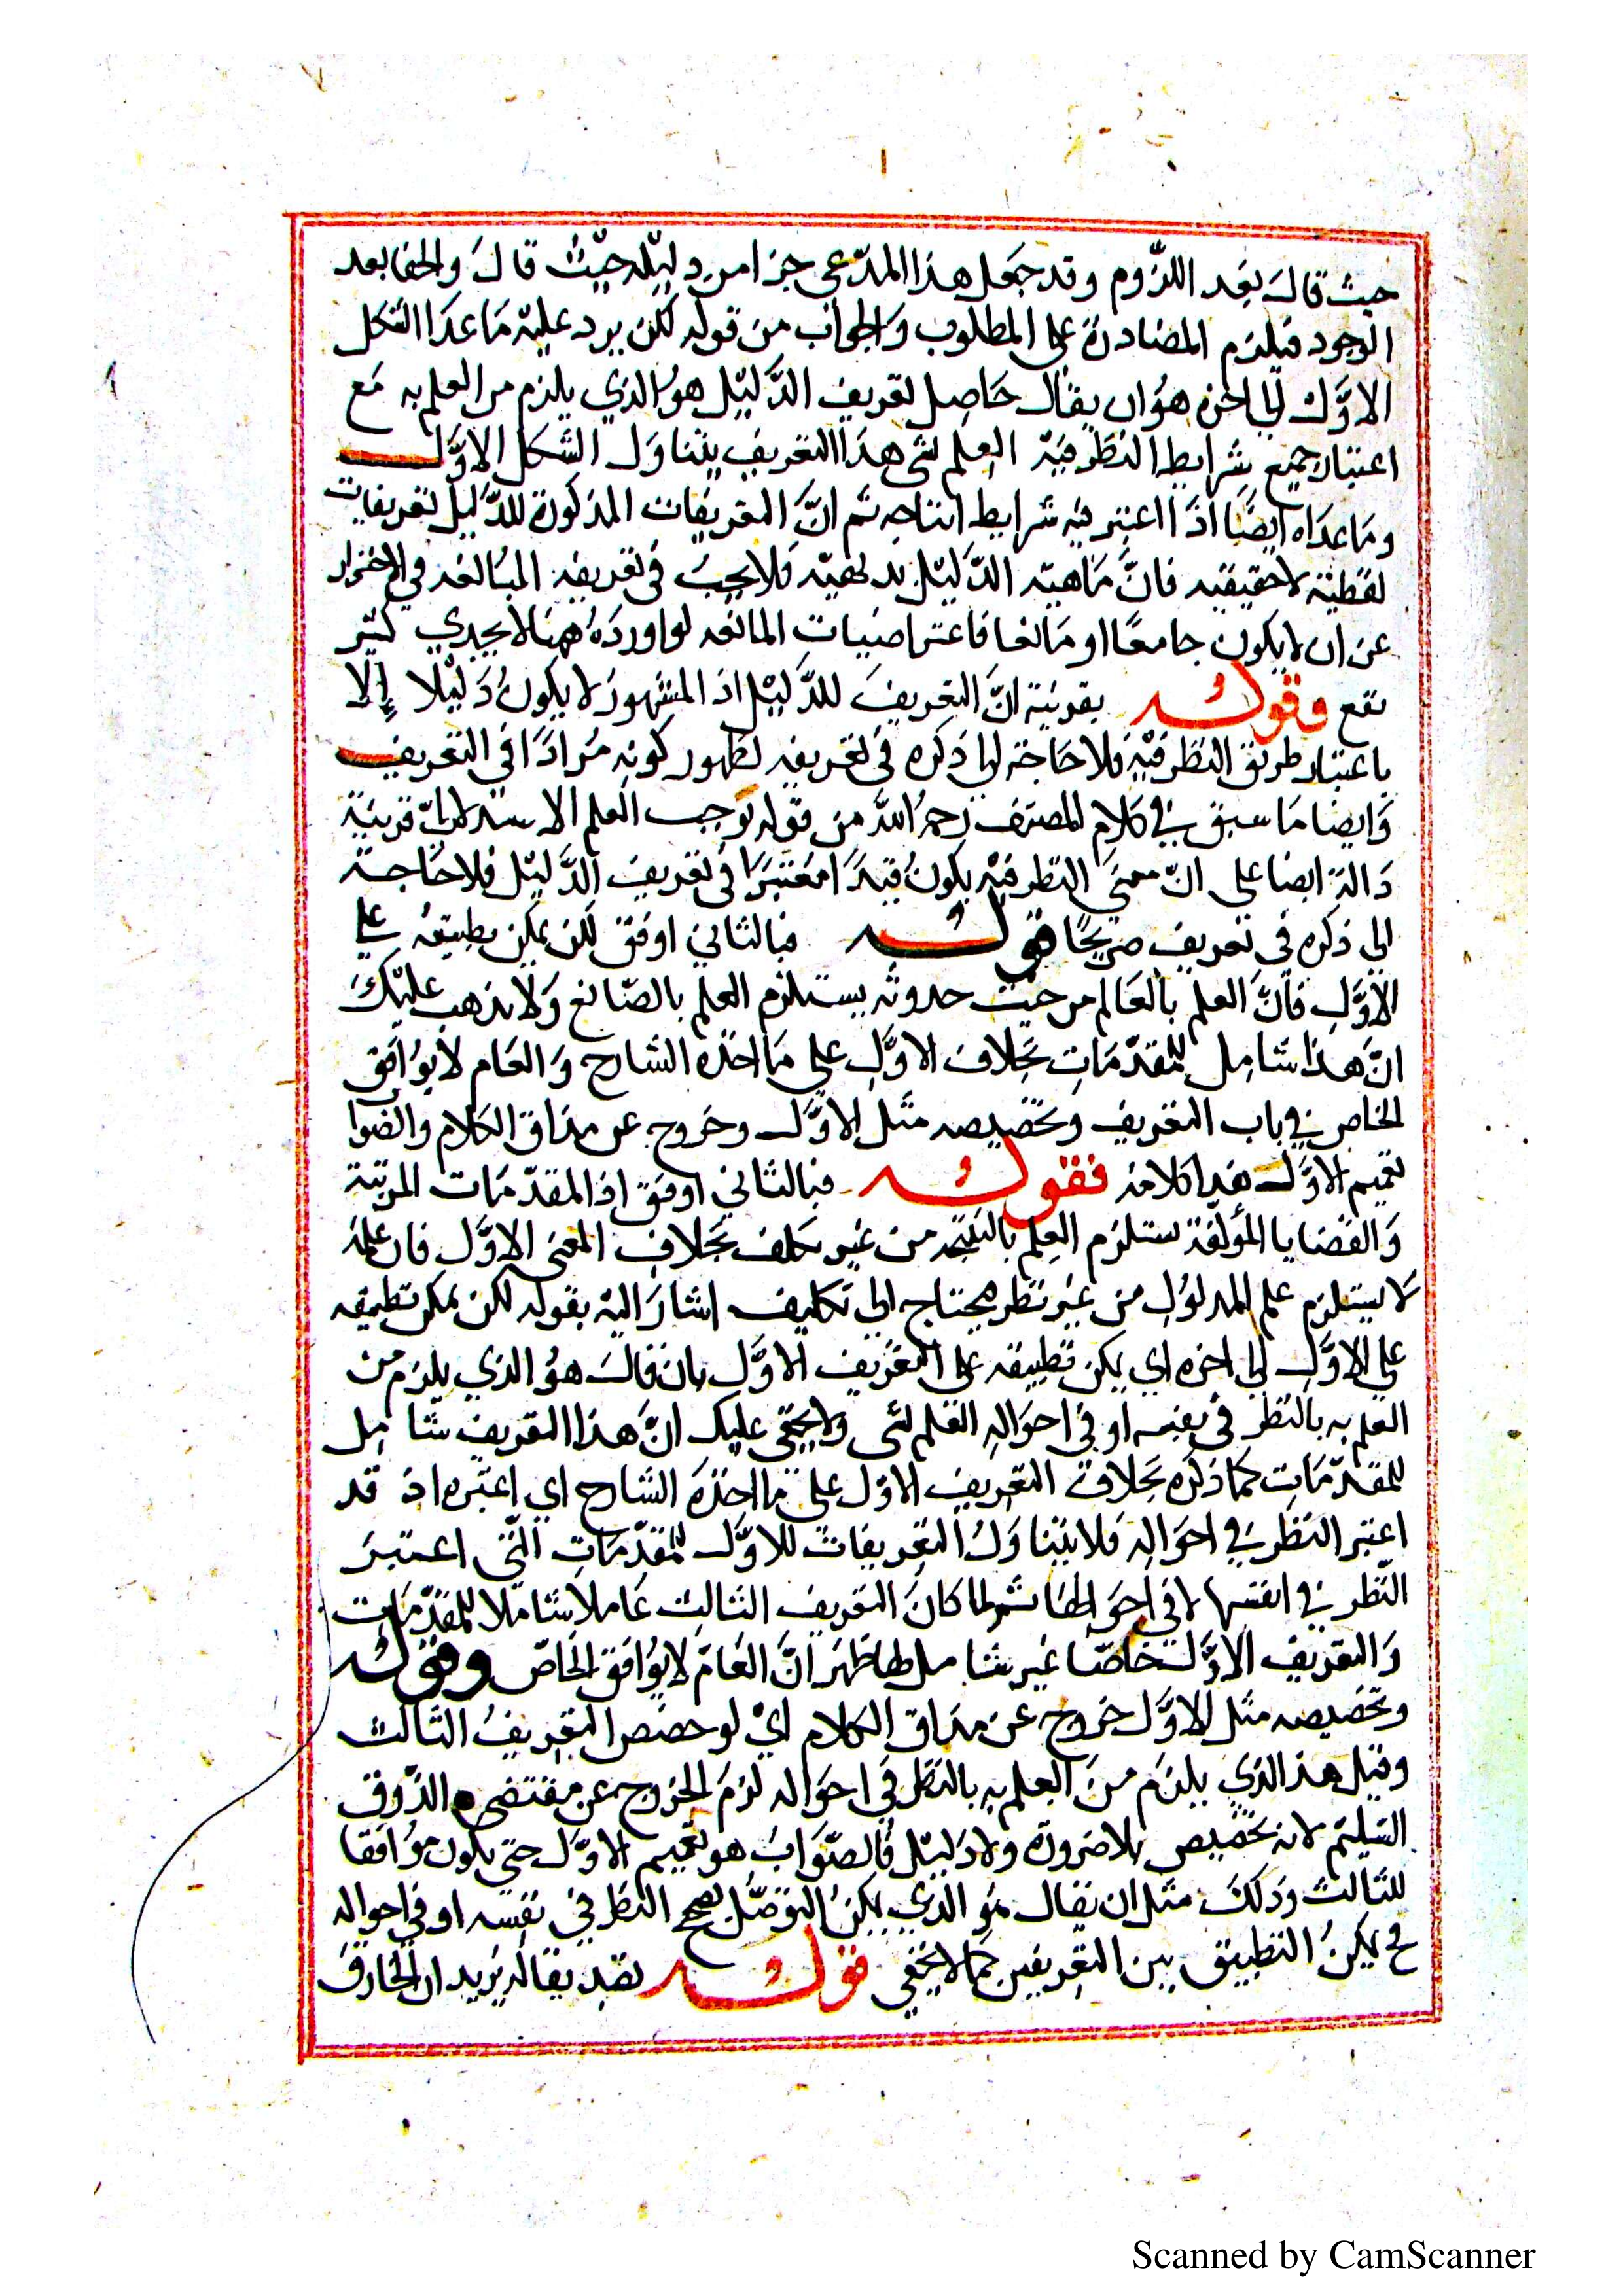 حيث قال بعد اللزوم وقد جعل هذا المدعى جزا من دليله حيث قال والخفا بعد
الوجود فيلزم المصادرة على المطلوب والجواب من قوله لكن يرد عليه ما عدا الشكل
الاول الى اخره هو ان يقال حاصل تعريف الدليل هو الذي يلزم من العلم به مع
اعتبار جميع شرايط النظر فيه العلم بشي هذا التعريف يتناول الشكل الاول
وما عداه ايضا اذا اعتبر فيه شرايط انتاجه ثم ان التعريفات المذكورة للدليل تعريفات
لفظية لا حقيقيه فان ماهية الدليل بديهيه فلا يجب في تعريفه المبالغه في الاحتراز
عن ان لا يكون جامعا او مانعا فاعتراضيات المانعه لو اورده ههنا لا يجدي كثير
نفع وقوله بقرينة ان التعريف للدليل اذ المشهور لا يكون دليلا إلا
باعتبار طريق النظر فيه فلا حاجة الى ذكره في تعريفه لظهور كونه مرادا في التعريف
وايضا ما سبق في كلام المصنف رحمه الله من قوله توجب العلم الاستدلالي قرينة
دالة ايضا على ان معنى النظر فيه يكون قيدا معتبرا في تعريف الدليل فلا حاجة
الى ذكره في تعريف صريحا قوله فبالثاني اوفق لكن يمكن تطبيقه على
الاول فان العلم بالعالم من حيث حدوثه يستلزم العلم بالصانع ولا يذهب عليك
ان هذا شامل للمقدمات بخلاف الاول على ما اخذه الشارح والعام لا يوافق
الخاص في باب التعريف وتخصيصه مثل الاول وخروج عن مذاق الكلام والصوا
تعميم الاول هذا كلامه فقوله فبالثاني اوفق اذ المقدمات المرتبة
والقضايا المؤلفة تستلزم العلم بالنتيجه من غير تكلف بخلاف المعنى الاول فان علمه
لا يستلزم علم المدلول من غير نظر يحتاج الى تكليف اشار اليه بقوله لكن يمكن تطبيقه
على الاول الى اخره اي يمكن تطبيقه على التعريف الاول بان قال هو الذي يلزم من
العلم به بالنظر في نفسه او في احواله العلم بشي ولا يخفى عليك ان هذا التعريف شامل
للمقدمات كما ذكره بخلاف التعريف الاول على ما اخذه الشارح اي اعتبره اذ قد
اعتبر النظر في احواله فلا يتناول التعريفات للاول للمقدمات التي اعتبر
النظر في انفسها لا في احوالها ثم لما كان التعريف الثالث عاملا شاملا للمقدمات
والتعريف الاول خاصا غير شامل لها ظهر ان العام لا يوافق الخاص وقوله
وتخصيصه مثل الاول خروج عن مذاق الكلام اي لو خصص التعريف الثالث
وقيل هذ الذي يلزم من العلم به بالنظر في احواله لزم الخروج عن مقتضى الذوق
السليم لانه تخصيص بلا ضرورة ولا دليل فالصواب هو تعميم الاول حتى يكون موافقا
للثالث وذلك مثل ان يقال هو الذي يمكن التوصل بصحيح النظر في نفسه او في احواله
فح يمكن التطبيق بين التعريفين كما لا يخفى قوله تصديقا له يريد ان الخارق
Scanned by CamScanner